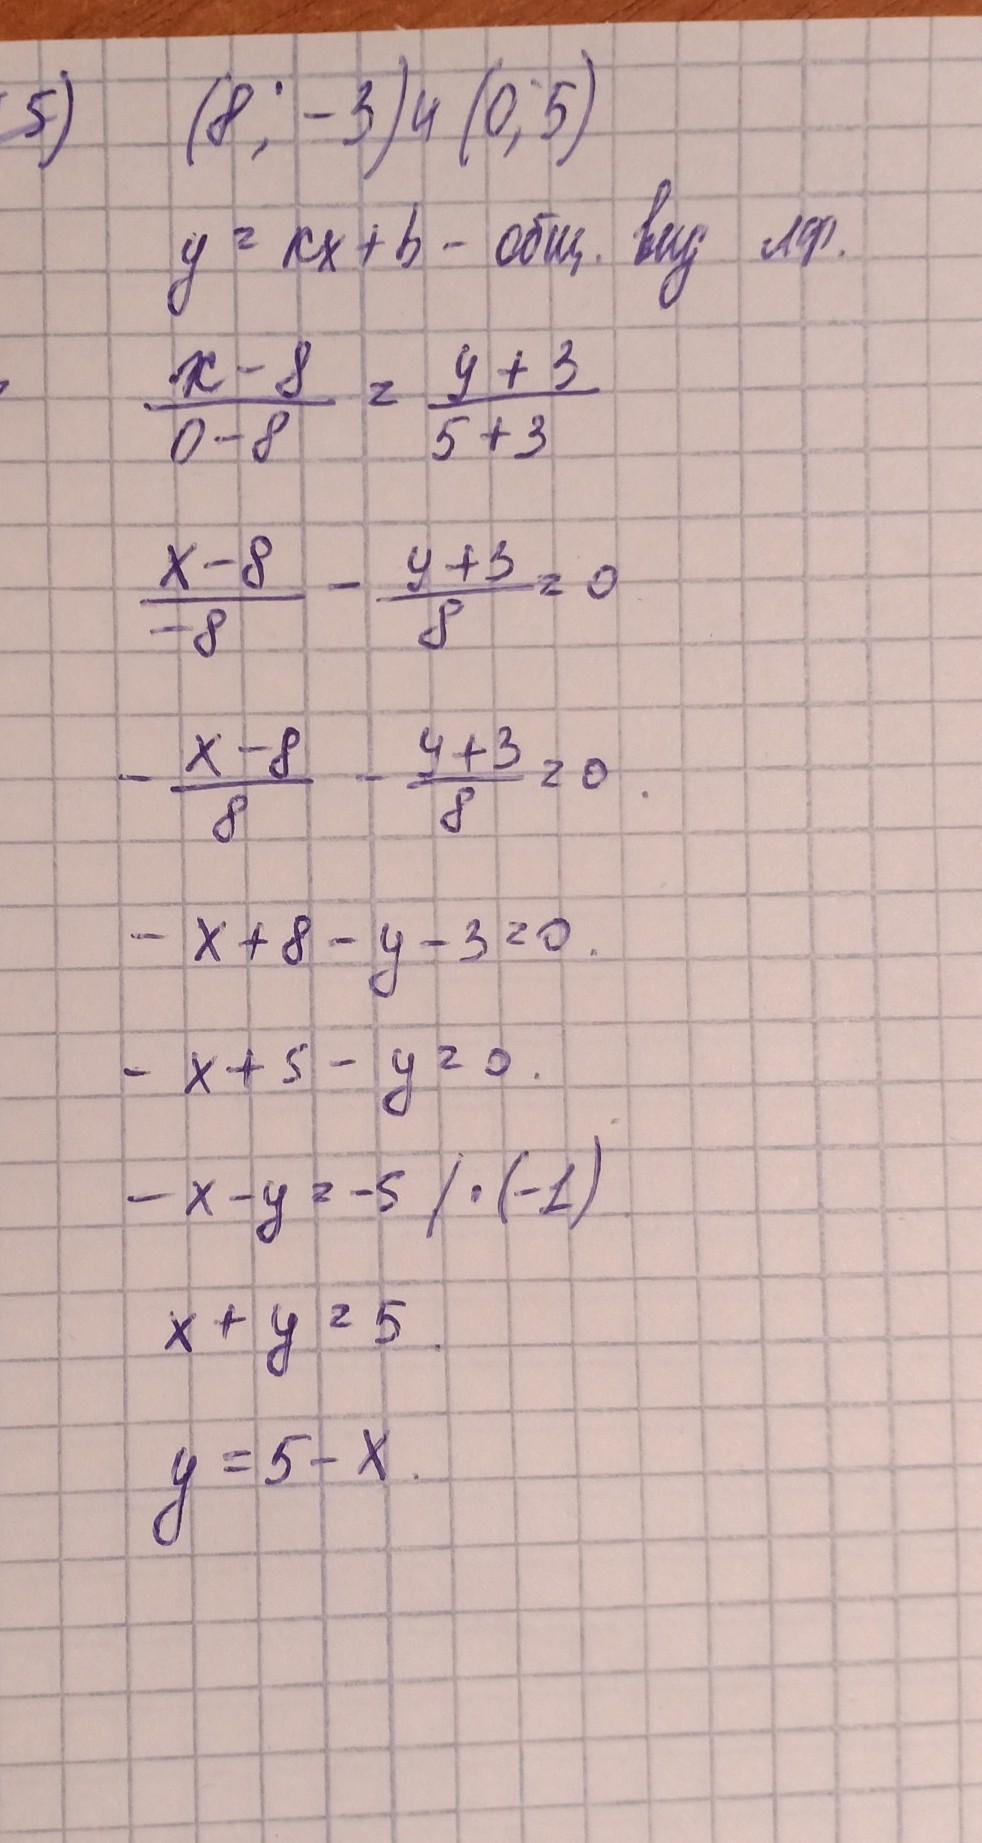 5) (8; -3) и (0; 5)
y = kx + b - общ. вид лф.
x - 8 / 0 - 8 = y + 3 / 5 + 3
x - 8 / -8 - y + 3 / 8 = 0
- x - 8 / 8 - y + 3 / 8 = 0.
- x + 8 - y - 3 = 0.
- x + 5 - y = 0.
- x - y = -5 / · (-1)
x + y = 5.
y = 5 - x.